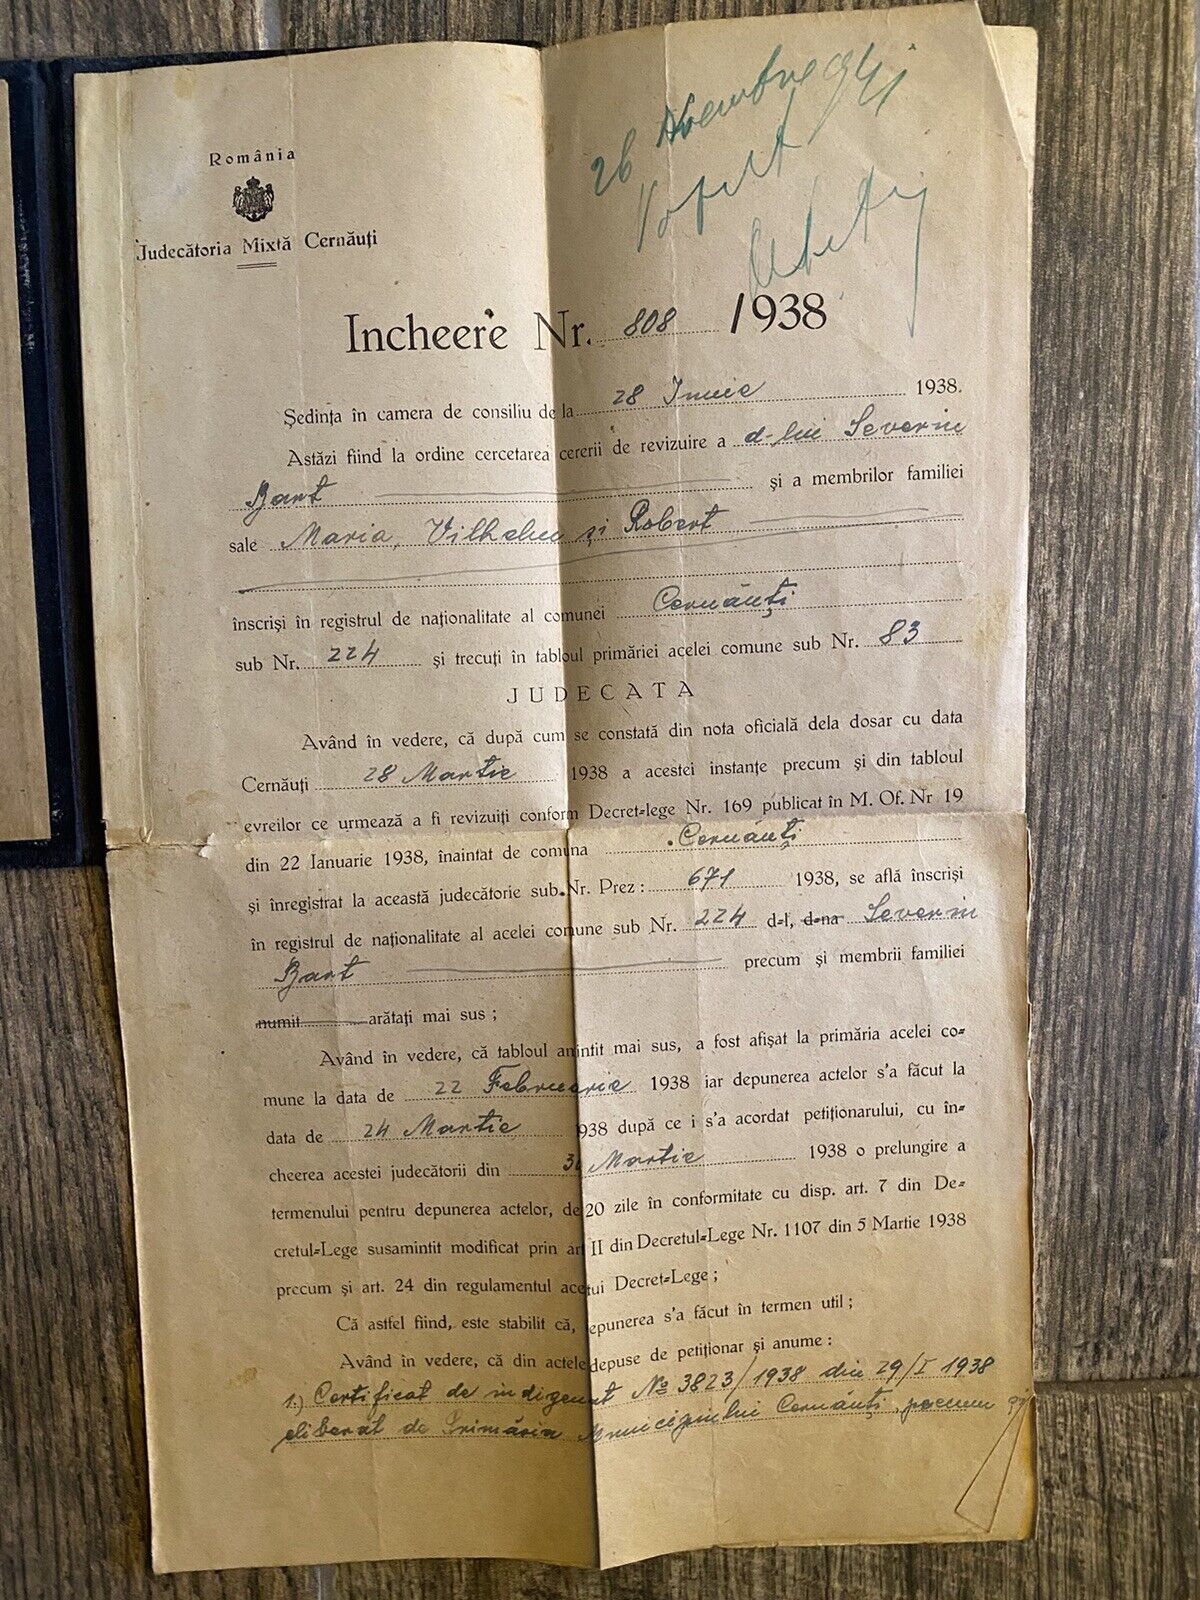 26
România
Judecătoria Mixtă Cernăuți
Incheere Nr. 808 /1938
Ședința în camera de consiliu de la 28 Iunie 1938.
Astăzi fiind la ordine cercetarea cererii de revizuire a d-lui Severin
Bart și a membrilor familiei
sale Maria, Vilhelm și Robert
înscriși în registrul de naționalitate al comunei Cernăuți
sub Nr. 224 și trecuți în tabloul primăriei acelei comune sub Nr. 83
JUDECATA
Având în vedere, că după cum se constată din nota oficială dela dosar cu data
Cernăuți 28 Martie 1938 a acestei instanțe precum și din tabloul
evreilor ce urmează a fi revizuiți conform Decret=lege Nr. 169 publicat în M. Of. Nr 19
din 22 Ianuarie 1938, înaintat de comuna Cernăuți
și înregistrat la această judecătorie sub Nr. Prez: 671 1938, se află înscriși
în registrul de naționalitate al acelei comune sub Nr. 224 d-l, d-na Severin
Bart precum și membrii familiei
numit arătați mai sus;
Având în vedere, că tabloul amintit mai sus, a fost afișat la primăria acelei co=
mune la data de 22 Februarie 1938 iar depunerea actelor s'a făcut la
data de 24 Martie 1938 după ce i s'a acordat petiționarului, cu în=
cheerea acestei judecătorii din Martie 1938 o prelungire a
termenului pentru depunerea actelor, de 20 zile în conformitate cu disp. art. 7 din De=
cretul=Lege susamintit modificat prin art II din Decretul=Lege Nr. 1107 din 5 Martie 1938
precum și art. 24 din regulamentul acetui Decret=Lege;
Că astfel fiind, este stabilit că, depunerea s'a făcut în termen util;
Având în vedere, că din actele depuse de petiționar și anume:
1.) Certificat de indigenat No 3823/1938 din 29/I 1938
eliberat de Primăria Municipiului Cernăuți, precum și